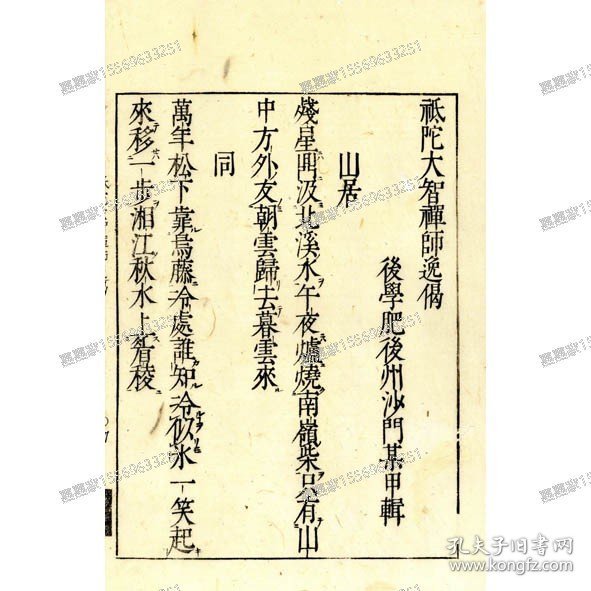 祗陀大智禪師逸偈
後學肥後州沙門某甲輯
山居
殘星閒汲北溪水午夜爐燒南嶺柴只有山
中方外友朝雲歸去暮雲來
同
萬年松下靠烏藤冷處誰知冷似氷一笑起
來移一步湘江秋水上
孔夫子旧书网
www.kongfz.com
15569633251